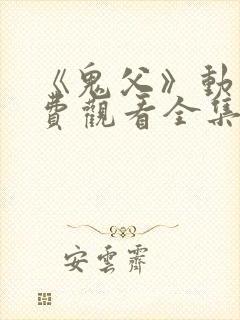 《鬼父》動
費觀看全集
安雲霽